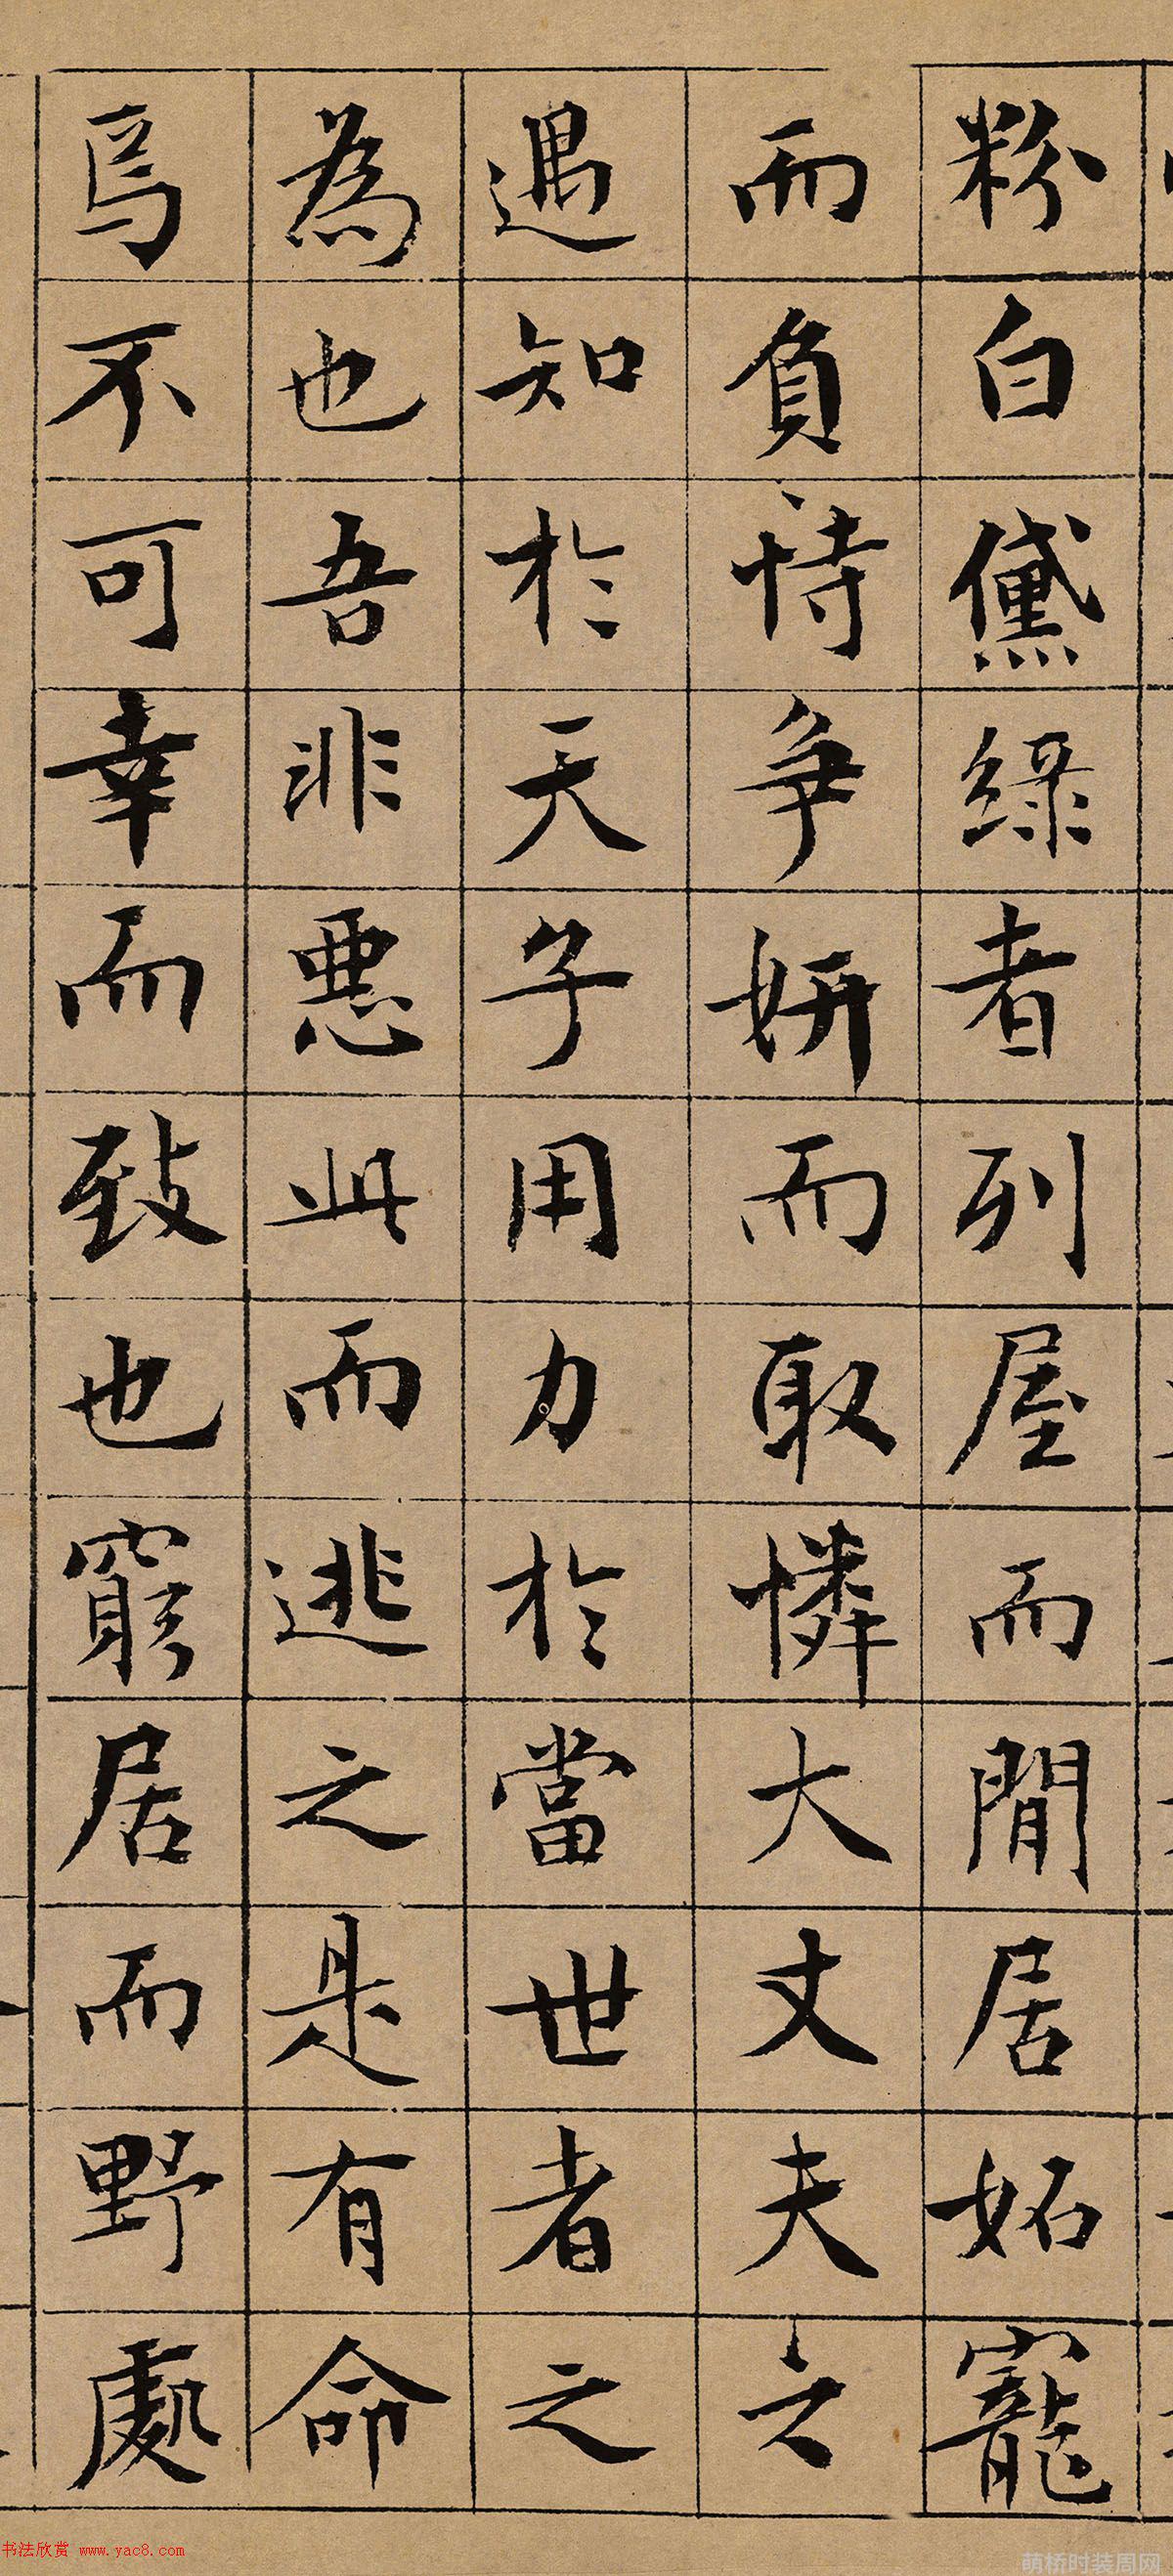 粉白黛綠者列屋而閒居妬寵
而負恃爭妍而取憐大丈夫之
遇知於天子用力於當世者之
為也吾非惡此而逃之是有命
焉不可幸而致也窮居而野處
书法欣赏 www.yac8.com
萌桥时装周网